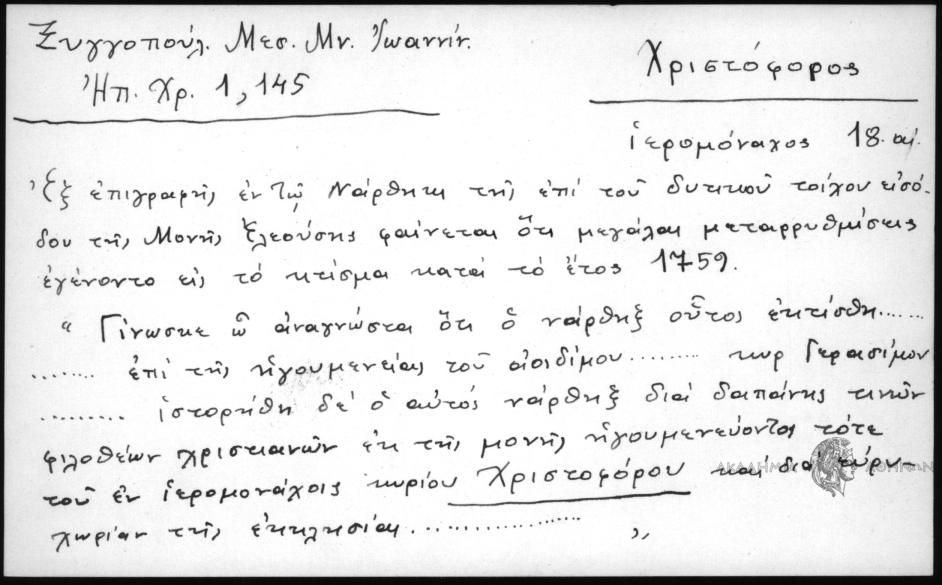 Ξυγγοπούλ. Μεσ. Μν. Ἰωαννίν.
Ἠπ. Χρ. 1, 145
Χριστόφορος
ἱερομόναχος 18. αἰ.
Ἐξ ἐπιγραφῆς ἐν τῷ Νάρθηκι τῆς ἐπὶ τοῦ δυτικοῦ τοίχου εἰσό-
δου τῆς Μονῆς Ἐλεούσης φαίνεται ὅτι μεγάλαι μεταρρυθμίσεις
ἐγένοντο εἰς τὸ κτίσμα κατὰ τὸ ἔτος 1759.
" Γίνωσκε ὦ ἀναγνῶστα ὅτι ὁ νάρθηξ οὗτος ἐκτίσθη......
........ ἐπὶ τῆς ἡγουμενείας τοῦ ἀοιδίμου......... κυρ Γερασίμου
......... ἱστορήθη δὲ ὁ αὐτός νάρθηξ διὰ δαπάνης τινῶν
φιλοθέων χριστιανῶν ἐκ τῆς μονῆς ἡγουμενεύοντος τότε
τοῦ ἐν ἱερομονάχοις κυρίου Χριστοφόρου καὶ διὰ εὐρυ-
χωρίαν τῆς ἐκκλησίας................ "
ΑΚΑΔΗΜΙΑ ΑΘΗΝΩΝ